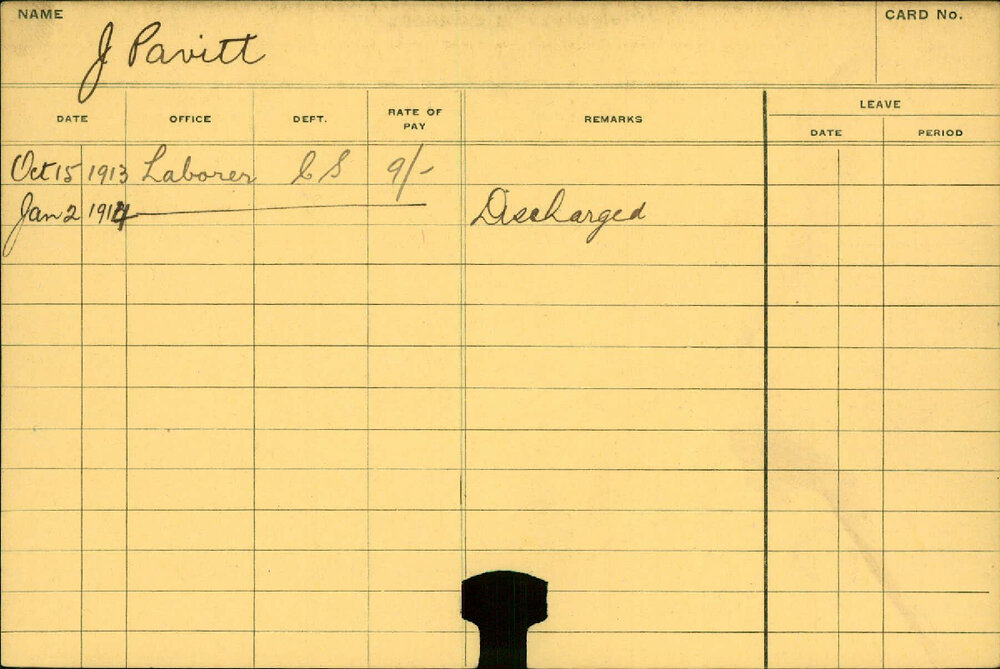 NAME CARD No.
J Pavitt
DATE OFFICE DEPT. RATE OF PAY REMARKS LEAVE
DATE PERIOD
Oct 15 1913 Laborer C S 9/-
Jan 2 1914 Discharged